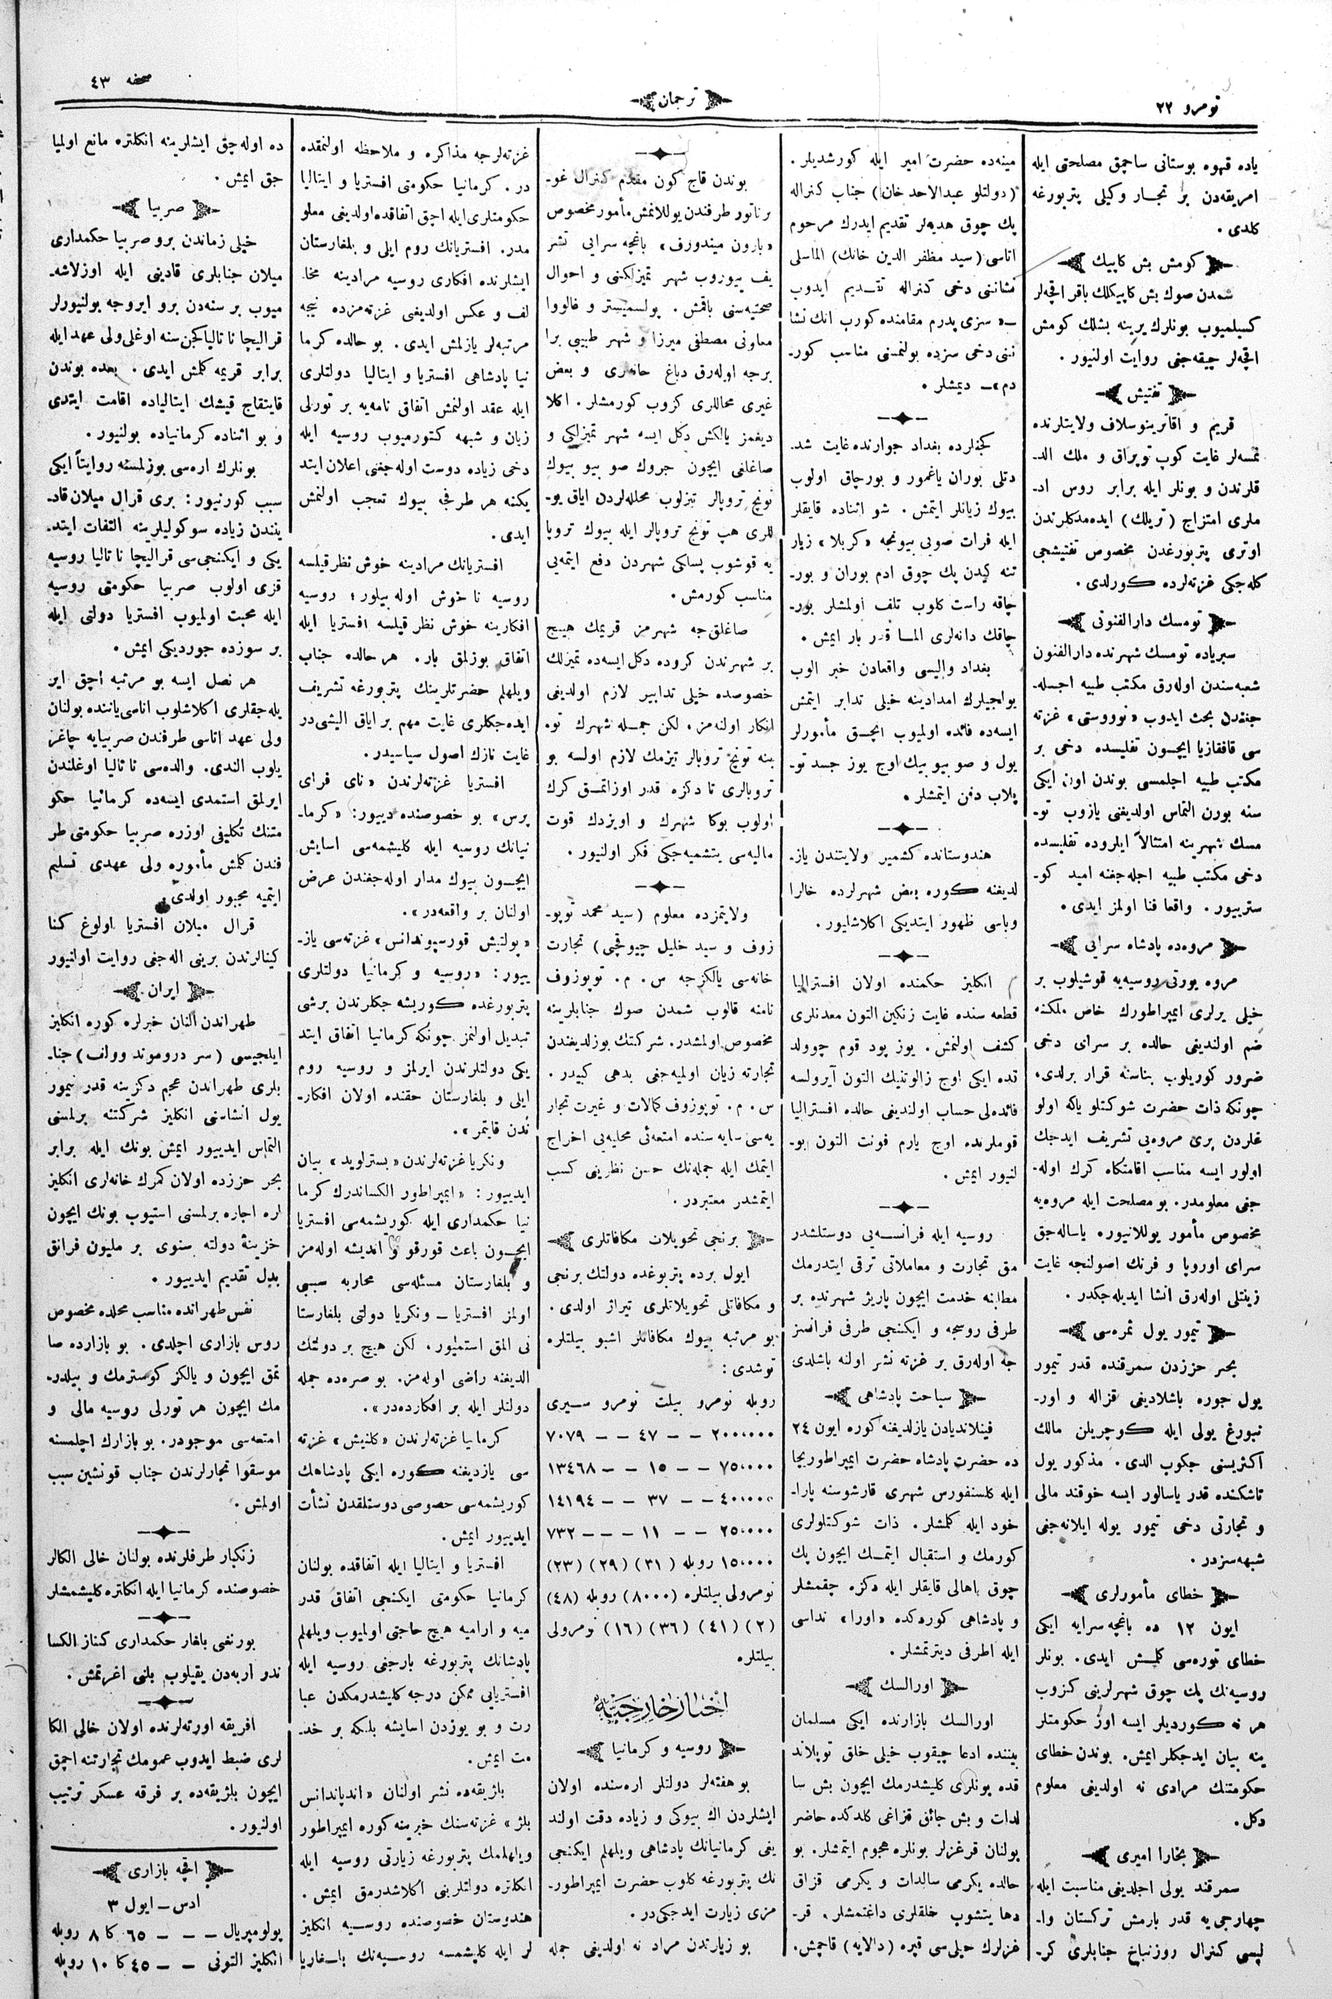 نومرو ٢٢
ترجمان
صحفه ٤٣
ياده قهوه بوستانى ساچمق مصلحتى ايله
امريقه‌دن بر تجار وكيلى پتربورغه
كلدى.
كومش بش كاپيك
شمدن صوك بش كاپيكلك باقر اقچه‌لر
كسيلميوب بونلرك يرينه بشلك كومش
اقچه‌لر چيقه‌جغى روايت اولنيور.
تفتيش
قريم و اقاترينوسلاف ولايتلرنده
نمسه‌لر غايت كوپ توپراق و ملك الد-
قلرندن و بونلر ايله برابر روس اد-
ملرى امتزاج (تريلك) ايده‌مدكلرندن
اوترى پتربورغدن مخصوص تفتيشجى
كله‌جكى غزته‌لرده كورلدى.
تومسك دارالفنونى
سبرياده تومسك شهرنده دارالفنون
شعبه‌سندن اوله‌رق مكتب طبيه اجسله-
جغندن بحث ايدوب «نووستى» غزته
سى قافقازيا ايچون تفليسده دخى بر
مكتب طبيه اجلمسى بوندن اون ايكى
سنه بورن التماس اولديغى يازوب تو-
مسك شهرينه امتثالاً ايلروده تفليسده
دخى مكتب طبيه اجله‌جغنه اميد كو-
ستريور. واقعا فنا اولمز ايدى.
مروه‌ده پادشاه سرايى
مروه يورتى روسيه‌يه قوشيلوب بر
خيلى يرلرى ايمپراطورك خاص ملكنه
ضم اولنديغى حالده بر سراى دخى
ضرور كوريلوب بناسنه قرار برلدى.
چونكه ذات حضرت شوكتلو ياكه اولو
غلردن برى مروه‌يى تشريف ايدجك
اولور ايسه مناسب اقامتكاه كرك اوله-
جغى معلومدر. بو مصلحت ايله مروه‌يه
مخصوص مأمور يوللانيور. ياساله‌جق
سراى اوروپا و فرنك اصولنجه غايت
زينتلى اوله‌رق انشا ايديله‌جكدر.
تيمور يول ثمره‌سى
بحر حززدن سمرقنده قدر تيمور
يول جوره باشلاديغى قزاله و اور-
نبورغ يولى ايله كوچريلن مالك
اكثريسنى جكوب الدى. مذكور يول
تاشكنده قدر ياسالور ايسه خوقند مالى
و تجارتى دخى تيمور يوله ايلانه‌جغى
شبهه‌سزدر.
خطاى مأمورلرى
ايون ١٢ ده باغچه سرايه ايكى
خطاى توره‌سى كلمش ايدى. بونلر
روسيه‌نك پك چوق شهرلرينى كزوب
هر نه كورديلر ايسه اوز حكومتلر
ينه بيان ايدجكلر ايمش. بوندن خطاى
حكومتنك مرادى نه اولديغى معلوم
دكل.
بخارا اميرى
سمرقند يولى اجلديغى مناسبت ايله
چهارجى‌يه قدر بارمش تركستان وا-
ليسى كنرال روزنباخ جنابلرى كر-
مينه‌ده حضرت امير ايله كورشديلر.
(دولتلو عبدالاحد خان) جناب كنراله
پك چوق هديه‌لر تقديم ايدرك مرحوم
اتاسى (سيد مظفر الدين خانك) الماسلى
نشاننى دخى كنراله تقديم ايدوب
-«سزى پدرم مقامنده كورب انك نشا
ننى دخى سزده بولنمسنى مناسب كور-
دم»- ديمشلر.
كجنلرده بغداد جوارنده غايت شد
دتلى بوران ياغمور و بورچاق اولوب
بيوك زيانلر ايتمش. شو اثناده قايقلر
ايله فرات صويى بيونجه «كربلا» زيار
تنه كيدن پك چوق ادم بوران و بور-
چاقه راست كلوب تلف اولمشلر بور-
چاقك دانه‌لرى الما قدر بار ايمش.
بغداد واليسى واقعادن خبر الوب
يولجيلرك امدادينه خيلى تدابر ايتمش
ايسه‌ده فائده اولميوب انجق مأمورلر
يول و صو بيو بيك اوج يوز جسد تو-
پلاب دفن ايتمشلر.
هندوستانده كشمير ولايتندن ياز-
لديغنه كوره بعض شهرلرده خالرا
وباسى ظهور ايتديكى اكلاشليور.
انكليز حكمنده اولان افستراليا
قطعه سنده غايت زنكين التون معدنلرى
كشف اولنمش. يوز پود قوم چوولد
قده ايكى اوج زالوتنيك التون آيرولسه
فائده‌لى حساب اولنديغى حالده افستراليا
قوملرنده اوج يارم فونت التون بو-
لنيور ايمش.
روسيه ايله فرانسه‌يى دوستلشدر
مق تجارت و معاملاتى ترقى ايتدرمك
مطالبنه خدمت ايچون پاريژ شهرنده بر
طرفى روسجه و ايكنجى طرفى فرانسز
جه اوله‌رق بر غزته نشر اولنه باشلدى
سياحت پادشاهى
فينلانديادن يازلديغنه كوره ايون ٢٤
ده حضرت پادشاه حضرت ايمپراطوريجا
ايله كلسنفورس شهرى قارشوسنه پارا-
خود ايله كلمشلر. ذات شوكتلولرى
كورمك و استقبال ايتمك ايچون پك
چوق باهالى قايقلر ايله دكزه چقمشلر
و پادشاهى كوردكده «اورا» نداسى
ايله اطرفى ديترتمشلر.
اورالسك
اورالسك بازارنده ايكى مسلمان
بيننده ادعا چيقوب خيلى خلق توپلاند
قده يونلرى كليشدرمك ايچون بش سا
لدات و بش جانق قزاغى كلدكده حاضر
بولنان قرغزلر بونلره هجوم ايتمشلر. بو
حالده يكرمى سالدات و يكرمى قزاق
دها يتشوب خلقلرى داغتمشلر. قر-
غزلرك حيله‌سى قيره (دالايه) قاچمش.
بوندن قاج كون مقدم كنرال غو-
برناتور طرفندن يوللانمش مأمور مخصوص
«بارون ميندورف» باغچه سرايى تشر
يف بيوروب شهر تميزلكنى و احوال
صحتيه‌سنى باقمش. پولسميستر و غالووا
معاونى مصطفى ميرزا و شهر طبيبى برا
برجه اوله‌رق دباغ حانه‌لرى و بعض
غيرى محاللرى كزوب كورمشلر. اكلا
ديغمز يالكش دكل ايسه شهر تميزلكى و
صاغلغى ايچون جروك صو بيو بيوك
تونج تروبالر تيزلوب محله‌لردن اياق يو-
للرى هپ تونج تروبالر ايله بيوك تروبا
يه قوشوب پسلكى شهردن دفع ايتمه‌يى
مناسب كورمش.
صاغلق‌جه شهرمز قريمك هيچ
بر شهرندن كروده دكل ايسه‌ده تميزلك
خصوصده خيلى تدابير لازم اولديغى
انكار اولنه‌مز. لكن جمله شهرك تو-
بنه تونج تروبالر تيزمك لازم اولسه بو
تروبالرى تا دكزه قدر اوزاتمق كرك
اولوب بوكا شهرك و اويزدك قوت
ماليه‌سى يتشميه‌جكى فكر اولنيور.
ولايتمزده معلوم (سيد محمد توپو-
زوف و سيد خليل چيوقجى) تجارت
خانه‌سى يالكزجه س. م. توپوزوف
نامنه قالوب شمدن صوك جنابلرينه
مخصوص اولمشدر. شركتك بوزلديغندن
تجارته زيان اولميه‌جغى بدهى كبيدر.
س. م. توپوزوف كمالات و غيرت تجار
يه‌سى سايه سنده امتعه‌ئى محليه‌يى اخراج
ايتمك ايله جمله‌نك حسن نظرينى كسب
ايتمشدر معتبردر.
برنجى تحويلات مكافاتلرى
ايول برده پتربوغده دولتك برنجى
و مكافاتلى تحويلاتلرى تيراژ اولدى.
بو مرتبه بيوك مكافاتلر اشبو بيلتلره
توشدى:
روبله نومرو بيلت نومرو سيرى
٢٠٠،٠٠٠ -- ٤٧ -- ٧٠٧٩
٧٥،٠٠٠ -- ١٥ -- ١٣٤٦٨
٤٠،٠٠٠ -- ٣٧ -- ١٤١٩٤
٢٥،٠٠٠ -- ١١ --- ٧٣٢
١٥،٠٠٠ روبله (٣١) (٢٩) (٢٣)
نومرولى بيلتلره (٨٠٠٠) روبله (٤٨)
(٢) (٤١) (٣٦) (١٦) نومرولى
بيلتلره
اخبار خارجيه
روسيه و كرمانيا
بو هفته‌لر دولتلر اره‌سنده اولان
ايشلردن اك بيوكى و زياده دقت اولند
يغى كرمانيانك پادشاهى ويلهلم ايكنجى
نك پتربورغه كلوب حضرت ايمپراطور-
مزى زيارت ايدجكى‌در.
بو زيارتدن مراد نه اولديغى جمله
غزته‌لرجه مذاكره و ملاحظه اولنمقده
در. كرمانيا حكومتى افستريا و ايتاليا
حكومتلرى ايله اچق اتفاقده اولديغى معلو
مدر. افستريانك روم ايلى و بلغارستان
ايشلرنده افكارى روسيه مرادينه مخا
لف و عكس اولديغى غزته‌مزده نيچه
مرتبه‌لر يازلمش ايدى. بو حالده كرما
نيا پادشاهى افستريا و ايتاليا دولتلرى
ايله عقد اولنمش اتفاق نامه‌يه بر تورلى
زيان و شبهه كتورميوب روسيه ايله
دخى زياده دوست اوله‌جغنى اعلان ايتد
يكنه هر طرفجى بيوك تعجب اولنمش
ايدى.
افستريانك مرادينه خوش نظر قيلسه
روسيه نا خوش اوله بيلور؛ روسيه
افكارينه خوش نظر قيلسه افستريا ايله
اتفاق بوزلمق بار. هر حالده جناب
ويلهلم حضرتلرينك پتربورغه تشريف
ايده‌جكلرى غايت مهم بر اياق اليشى‌در
غايت نازك اصول سياسيدر.
افستريا غزته‌لرندن «ناى فراى
پرس» بو خصوصنده دييور: «كرما-
نيانك روسيه ايله كليشمه‌سى اسايش
ايچون بيوك مدار اوله‌جغندن عرض
اولنان بر واقعه‌در».
«پولتيش قورسپوندانس» غزته‌سى ياز-
ييور: «روسيه و كرمانيا دولتلرى
پتربورغده كوريشه جكلرندن برشى
تبديل اولنمز چونكه كرمانيا اتفاق ايتد
يكى دولتلرندن ايرلمز و روسيه روم
ايلى و بلغارستان حقنده اولان افكار-
ندن قايتمز».
ونكريا غزته‌لرندن «بسترلويد» بيان
ايدييور: «ايمپراطور الكساندرك كرما
نيا حكمدارى ايله كوريشمه‌سى افستريا
ايچون باعث قورقو و انديشه اوله‌مز
و بلغارستان مسئله‌سى محاربه سببى
اولمز افستريا - ونكريا دولتى بلغارستا
نى المق استميور. لكن هيچ بر دولتك
الديغنه راضى اوله‌مز. بو صره‌ده جمله
دولتلر ايله بر افكارده‌در».
كرمانيا غزته‌لرندن «كلنيش» غزته
سى يازديغنه كوره ايكى پادشاهك
كوريشمه‌سى خصوصى دوستلقدن نشأت
ايدييور ايمش.
افستريا و ايتاليا ايله اتفاقده بولنان
كرمانيا حكومتى ايكنجى اتفاق قدر
ميه و اراميه هيچ حاجتى اولميوب ويلهلم
پادشانك پتربورغه بارجغى روسيه ايله
افستريايى ممكن درجه كليشدرمكدن عبا
رت و بو يوزدن اسايشه بلكه بر خد-
مت ايمش.
بلژيقه‌ده نشر اولنان «اندپاندانس
بلژ» غزته‌سنك خبرينه كوره ايمپراطور
ويلهلمك پتربورغه زيارتى روسيه ايله
انكلتره دولتلرينى اكلاشدرمق ايمش.
هندوستان خصوصنده روسيه انكليز
لر ايله كليشمسه روسيه‌نك بلغاريا
ده اوله‌جق ايشلرينه انكلتره مانع اولميا
جق ايمش.
صربيا
خيلى زماندن برو صربيا حكمدارى
ميلان جنابلرى قادينى ايله اوزلاشه-
ميوب بر سنه‌دن برو ايروجه بولنيورلر
قراليچا نا تاليا كجن سنه اوغلى ولى عهد ايله
برابر قريمه كلمش ايدى. بعده بوندن
قايتقاج قيشك ايتالياده اقامت ايتدى
و بو اثناده كرمانياده بولنيور.
بونلرك اره‌سى بوزلمسنه روايتاً ايكى
سبب كورنيور: برى قرال ميلان قاد-
ينندن زياده سوكوليلرينه التفات ايتد-
يكى و ايكنجى‌سى قراليچا نا تاليا روسيه
قزى اولوب صربيا حكومتى روسيه
ايله محبت اولميوب افستريا دولتى ايله
بر سوزده جورديكى ايمش.
هر نصل ايسه بو مرتبه اچق اير
يله‌جقلرى اكلاشلوب اناسى ياننده بولنان
ولى عهد اتاسى طرفندن صربيايه چاغر
يلوب الندى. والده‌سى نا تاليا اوغلندن
ايرلمق استمدى ايسه‌ده كرمانيا حكو
متنك تكليفى اوزره صربيا حكومتى طر
فندن كلمش مأموره ولى عهدى تسليم
ايتميه مجبور اولدى.
قرال ميلان افستريا اولوغ كنا
كينالرندن برينى اله‌جغى روايت اولنيور
ايران
طهراندن النان خبرلره كوره انكليز
ايلجيسى (سر دروموند وولف) جنا-
بلرى طهراندن عجم دكزينه قدر تيمور
يول انشاسنى انكليز شركتنه برلمسنى
التماس ايدييور ايمش بونك ايله برابر
بحر حززده اولان كمرك خانه‌لرى انكليز
لره اجاره برلمسنى استيوب بونك ايچون
خزينهٔ دولته سنوى بر مليون فرانق
بدل تقديم ايدييور.
نفس طهرانده مناسب محلده مخصوص
روس بازارى اجلدى. بو بازارده صا
تمق ايچون و يالكز كوسترمك و بيلدر-
مك ايچون هر تورلى روسيه مالى و
امتعه‌سى موجودر. بو بازارك اچلمسنه
موسقوا تجارلرندن جناب قونشين سبب
اولمش.
زنكبار طرفلرنده بولنان خالى الكالر
خصوصنده كرمانيا ايله انكلتره كليشمشلر
بورنغى بلغار حكمدارى كناز الكسا
ندو اربه‌دن يقيلوب بلنى اغرتمش.
افريقه اورته‌لرنده اولان خالى الكا
لرى ضبط ايدوب عمومك تجارتنه اچمق
ايچون بلژيقه‌ده بر فرقه عسكر ترتيب
اولنيور.
اقچه بازارى
ادس - ايول ٣
پولومپريال --- ٦٥ كا ٨ روبله
انكليز التونى -- ٤٥ كا ١٠ روبله